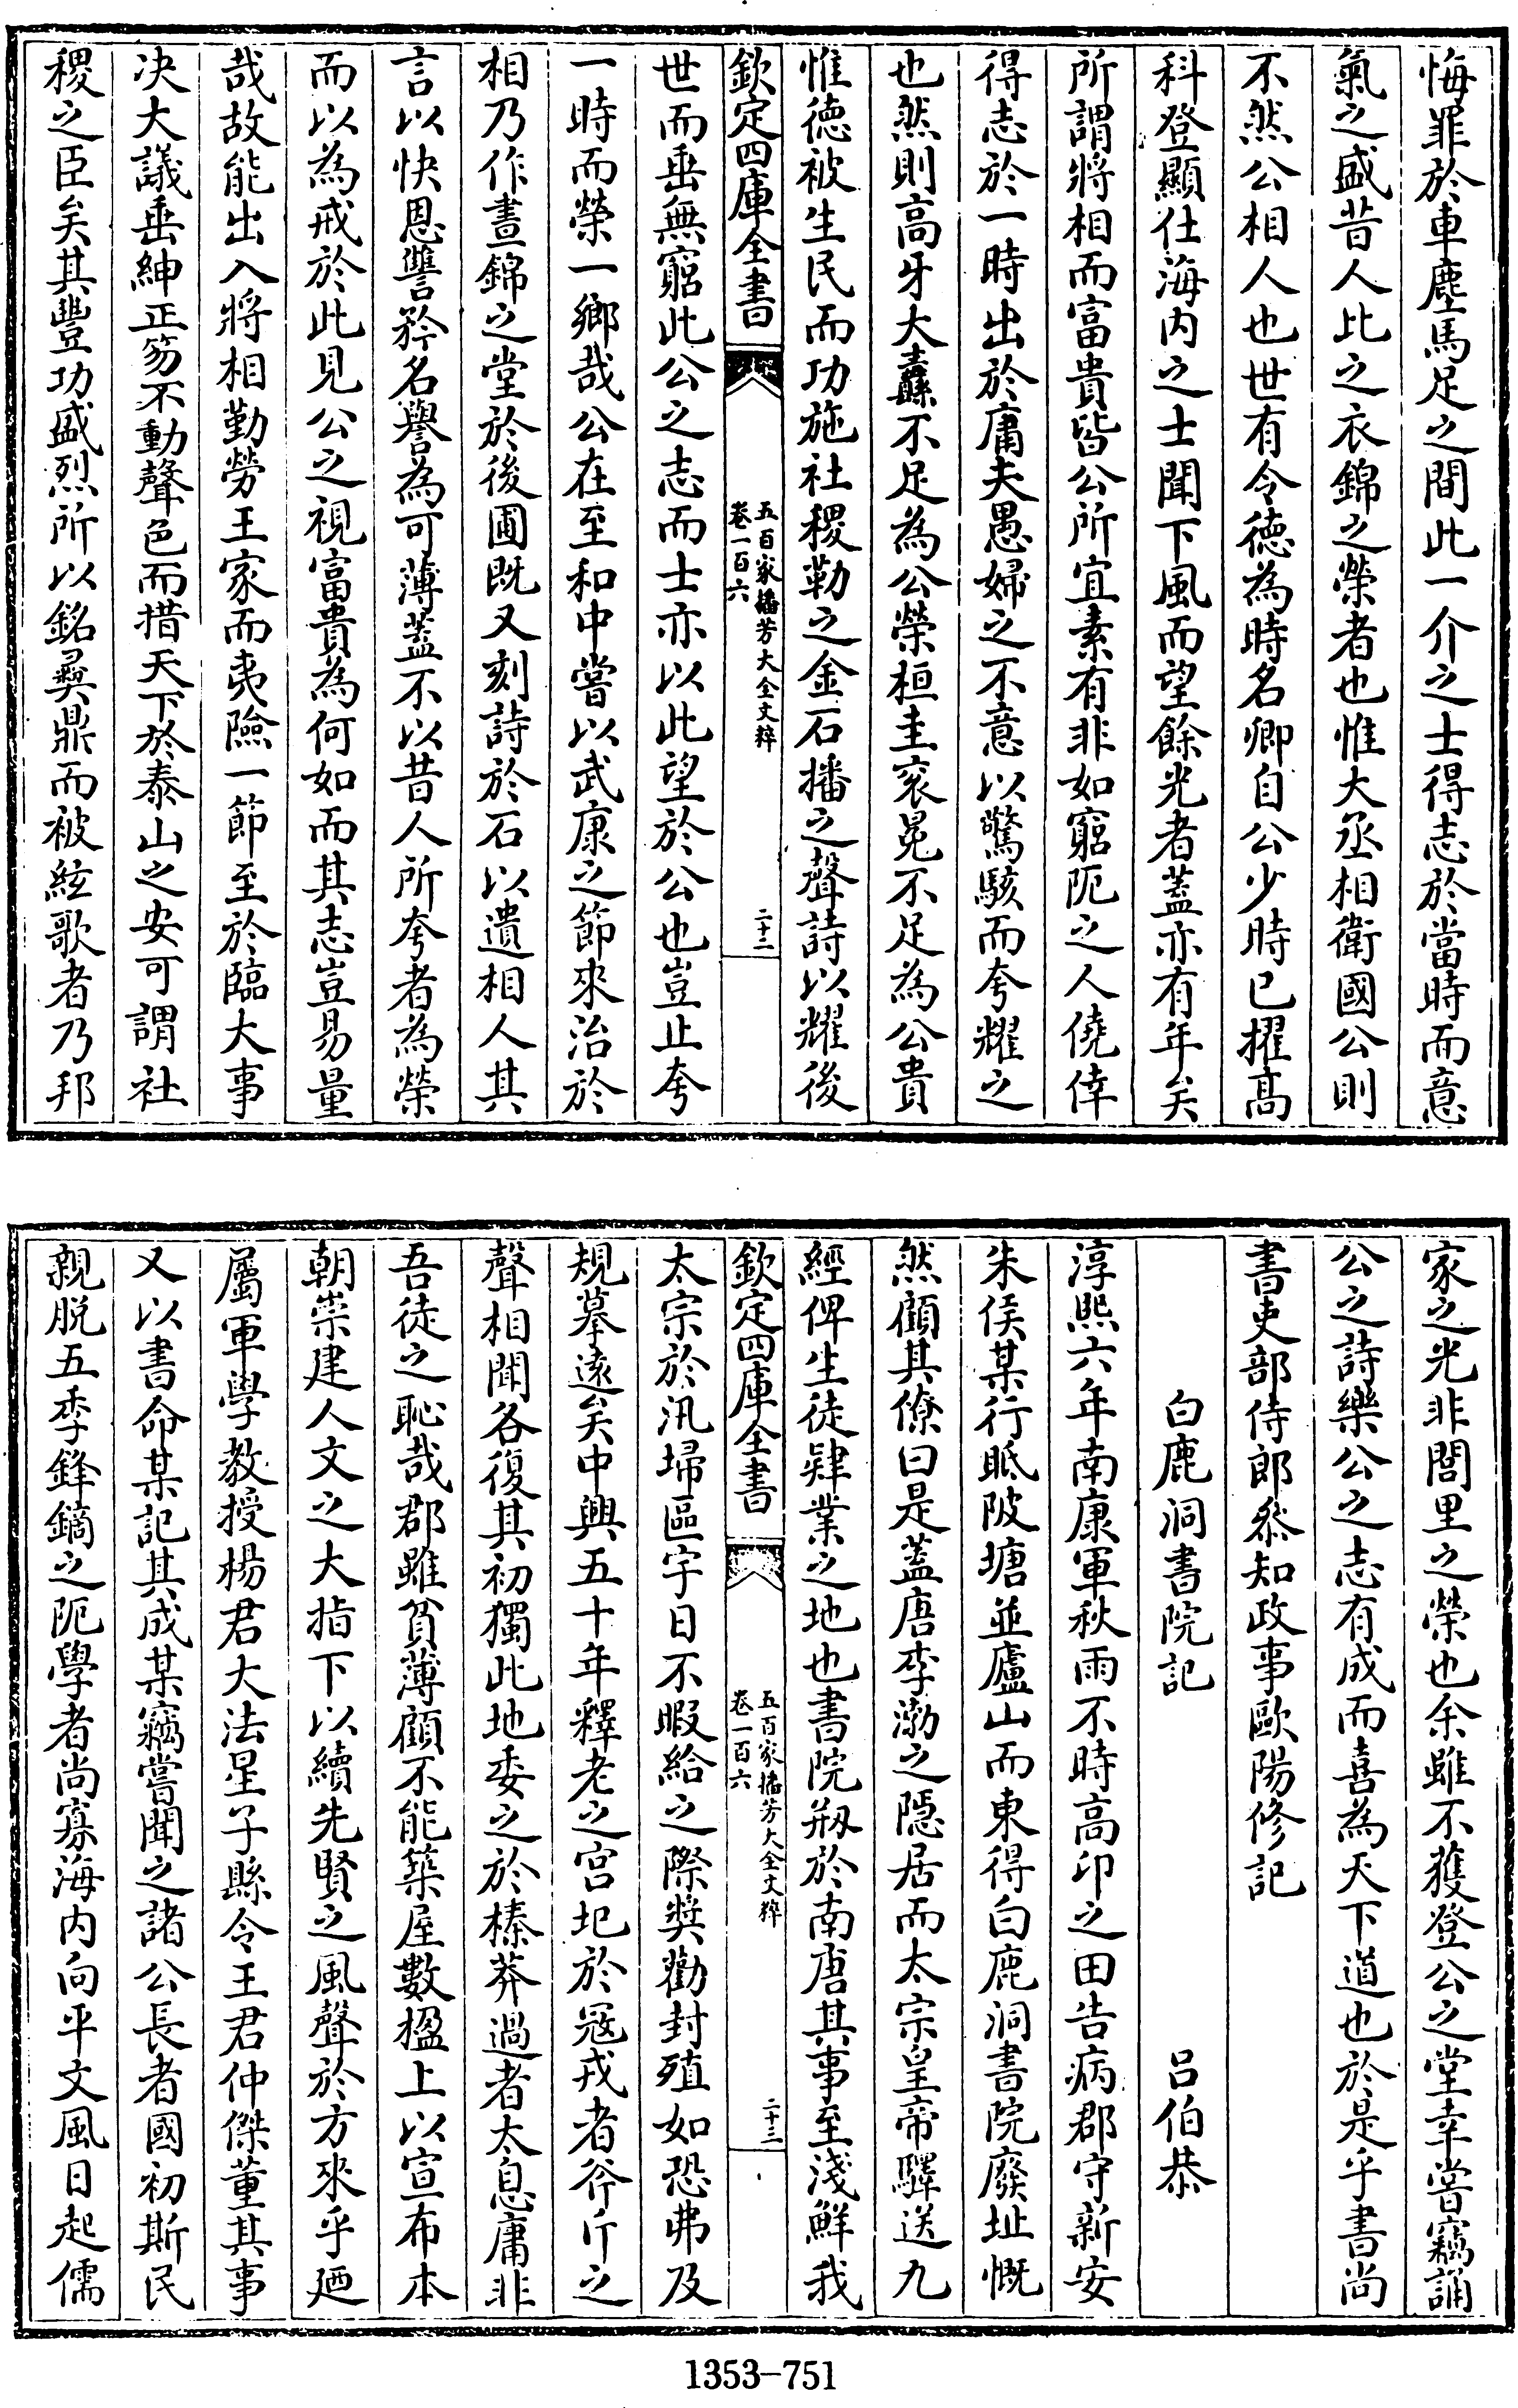 悔罪於車塵馬足之間此一介之士得志於當時而意
氣之盛昔人比之衣錦之榮者也惟大丞相衛國公則
不然公相人也世有令德為時名卿自公少時已擢髙
科登顯仕海内之士聞下風而望餘光者蓋亦有年矣
所謂將相而富貴皆公所宜素有非如窮阨之人僥倖
得志於一時出於庸夫愚婦之不意以驚駭而夸耀之
也然則高牙大纛不足為公榮桓圭衮冕不足為公貴
惟德被生民而功施社稷勒之金石播之聲詩以耀後
欽定四庫全書
五百家播芳大全文粹
卷一百六
二十二
世而垂無窮此公之志而士亦以此望於公也豈止夸
一時而榮一鄉哉公在至和中嘗以武康之節來治於
相乃作晝錦之堂於後圃既又刻詩於石以遺相人其
言以快恩讐矜名譽為可薄蓋不以昔人所夸者為榮
而以為戒於此見公之視富貴為何如而其志豈易量
哉故能出入將相勤勞王家而夷險一節至於臨大事
决大議垂紳正笏不動聲色而措天下於泰山之安可謂社
稷之臣矣其豐功盛烈所以銘彛鼎而被絃歌者乃邦
家之光非閭里之榮也余雖不獲登公之堂幸嘗竊誦
公之詩樂公之志有成而喜為天下道也於是乎書尚
書吏部侍郎叅知政事歐陽修記
白鹿洞書院記 吕伯恭
淳熙六年南康軍秋雨不時高卬之田告病郡守新安
朱侯某行眡陂塘並廬山而東得白鹿洞書院廢址慨
然顧其僚曰是蓋唐李渤之隱居而太宗皇帝驛送九
經俾生徒肄業之地也書院剏於南唐其事至淺鮮我
欽定四庫全書
五百家播芳大全文粹
卷一百六
二十三
太宗於汛掃區宇日不暇給之際奬勸封殖如恐弗及
規摹遠矣中興五十年釋老之宫圮於寇戎者斧斤之
聲相聞各復其初獨此地委之於榛莽過者太息庸非
吾徒之恥哉郡雖貧薄顧不能築屋數楹上以宣布本
朝崇建人文之大指下以續先賢之風聲於方來乎廼
屬軍學教授楊君大法星子縣令王君仲傑董其事
又以書命某記其成某竊嘗聞之諸公長者國初斯民
親脱五季鋒鏑之阨學者尚寡海内向平文風日起儒
1353-751